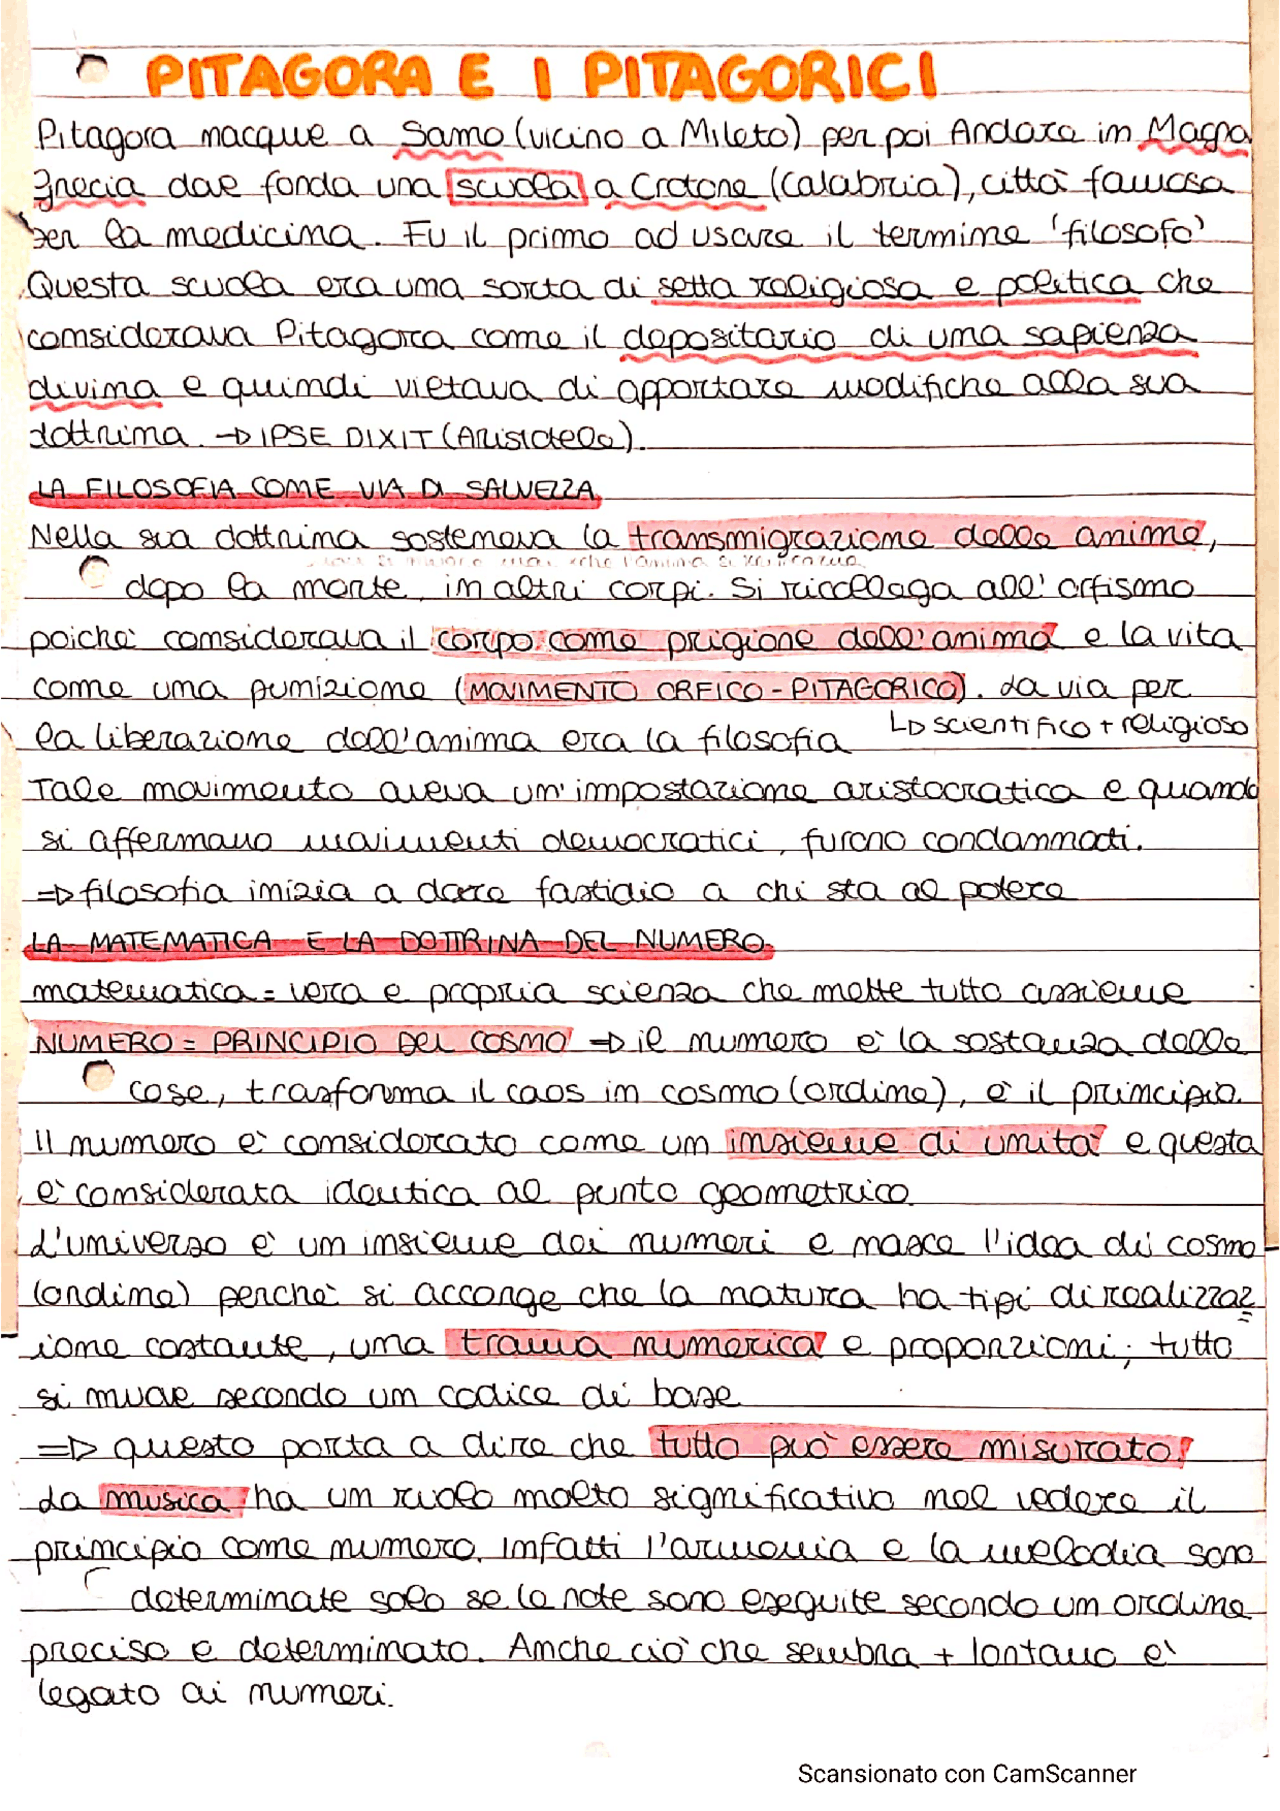 PITAGORA E I PITAGORICI
Pitagora nacque a Samo (vicino a Mileto) per poi Andare in Magna
Grecia dove fonda una scuola a Crotone (Calabria), città famosa
per la medicina. Fu il primo ad usare il termine 'filosofo'
Questa scuola era una sorta di setta religiosa e politica che
considerava Pitagora come il depositario di una sapienza
divina e quindi vietava di apportare modifiche alla sua
dottrina. → IPSE DIXIT (Aristotele).
LA FILOSOFIA COME VIA DI SALVEZZA
Nella sua dottrina sosteneva la transmigrazione delle anime,
dopo la morte, in altri corpi. Si ricollaga all'orfismo
poichè considerava il corpo come prigione dell'anima e la vita
come una punizione (MOVIMENTO ORFICO-PITAGORICO). La via per
la liberazione dell'anima era la filosofia ↳ scientifico + religioso
Tale movimento aveva un'impostazione aristocratica e quando
si affermano movimenti democratici, furono condannati.
⇒ filosofia inizia a dare fastidio a chi sta al potere
LA MATEMATICA E LA DOTTRINA DEL NUMERO.
matematica = vera e propria scienza che mette tutto assieme
NUMERO = PRINCIPIO DEL COSMO ⇒ il numero è la sostanza delle
cose, trasforma il caos in cosmo (ordine), è il principio.
Il numero è considerato come un insieme di unità e questa
è considerata identica al punto geometrico.
L'universo è un insieme dei numeri e nasce l'idea di cosmo
(ordine) perchè si accorge che la natura ha tipi di realizzaz
ione costante, una trama numerica e proporzioni; tutto
si muove secondo un codice di base
⇒ questo porta a dire che tutto può essere misurato!
La musica ha un ruolo molto significativo nel vedere il
principio come numero. Infatti l'armonia e la melodia sono
determinate solo se le note sono eseguite secondo un ordine
preciso e determinato. Anche ciò che sembra + lontano è
legato ai numeri.
Scansionato con CamScanner